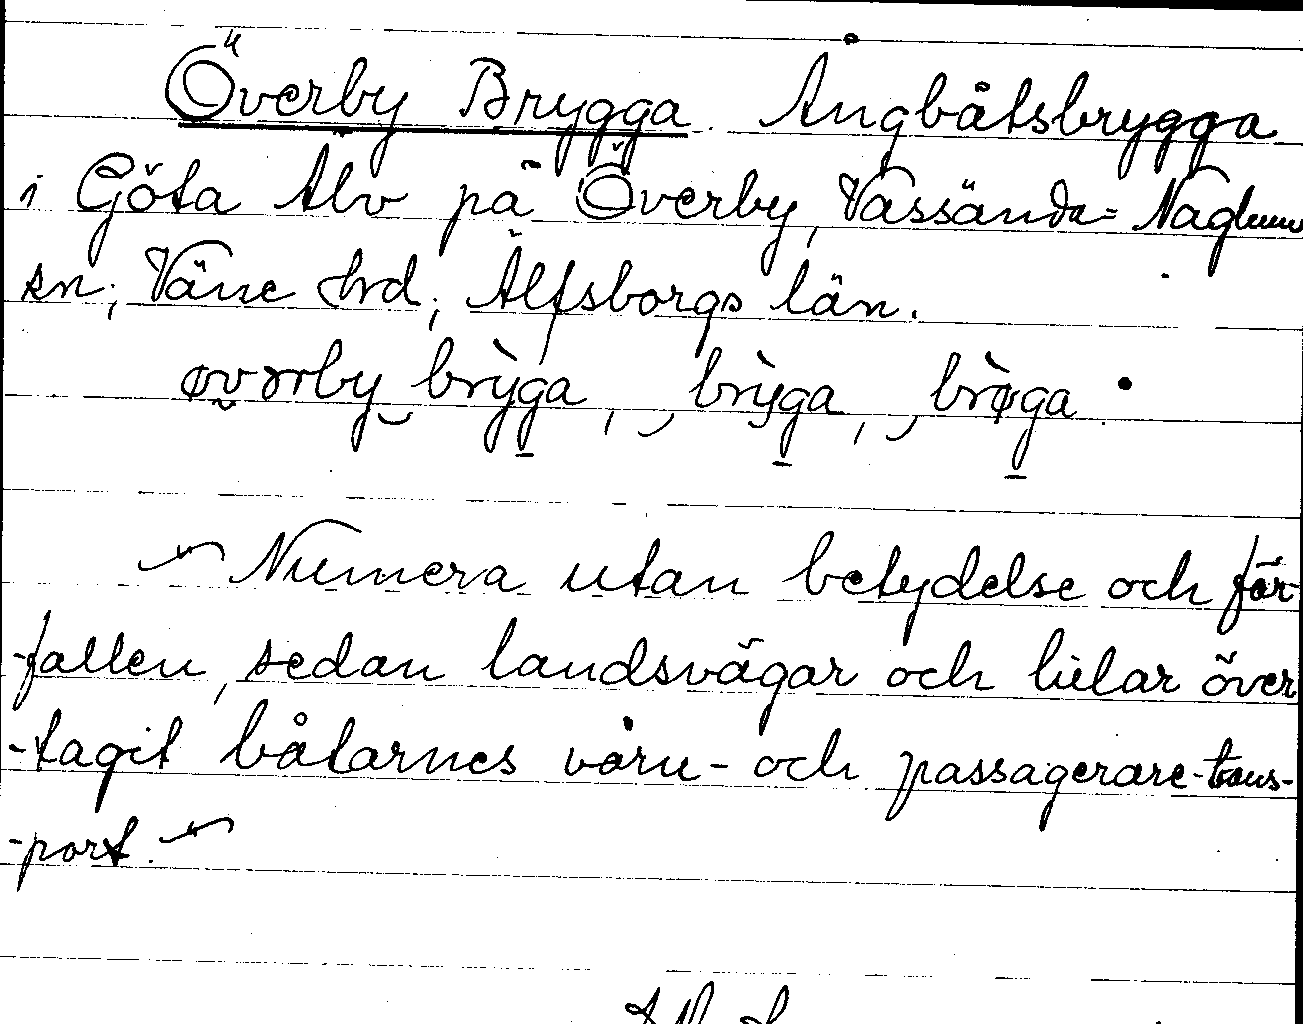 Överby Brygga. Ångbåtsbrygga
i Göta Älv på Överby, Vassända= Naglum
sn; Väne hrd; Älfsborgs län.
øvərby brỳga, , brỳga, , brøga.
Numera utan betydelse och för-
-fallen, sedan landsvägar och bilar över
-tagit båtarnes varu- och passagerare-trans-
-port.